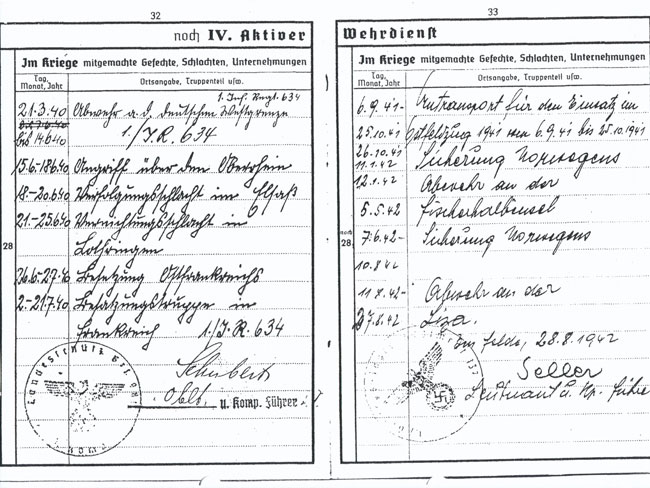 32
noch IV. Aktiver
Im Kriege mitgemachte Gefechte, Schlachten, Unternehmungen
Tag, Monat, Jahr
Ortsangabe, Truppenteil usw.
1. Inf. Regt. 634
21.3.40
Abwehr a. d. deutschen Westgrenze
bis 14.6.40
1./J.R. 634
15.6.-18.6.40 Angriff über den Oberrhein
18.-20.6.40 Verfolgungsschlacht im Elsaß
21.-25.6.40 Vernichtungsschlacht in
28
Lothringen
26.6.-2.7.40 Besetzung Ostfrankreichs
2.-21.7.40 Besatzungstruppe in
Frankreich 1./J.R. 634
Landesschütz
Schubert
Oblt. u. Komp. Führer
33
Wehrdienst
Im Kriege mitgemachte Gefechte, Schlachten, Unternehmungen
Tag, Monat, Jahr
Ortsangabe, Truppenteil usw.
6.9.41- Antransport für den Einsatz im
25.10.41 Ostfeldzug 1941 vom 6.9.41 bis 25.10.1941
26.10.41
11.1.42 Sicherung Norwegens
12.1.42 Abwehr an der
5.5.42 Fischerhalbinsel
noch 28
7.6.42- Sicherung Norwegens
10.8.42
11.8.42- Abwehr an der
27.8.42 Liza.
Im Felde, 28.8.1942
Seller
Leutnant u. Kp. Führer